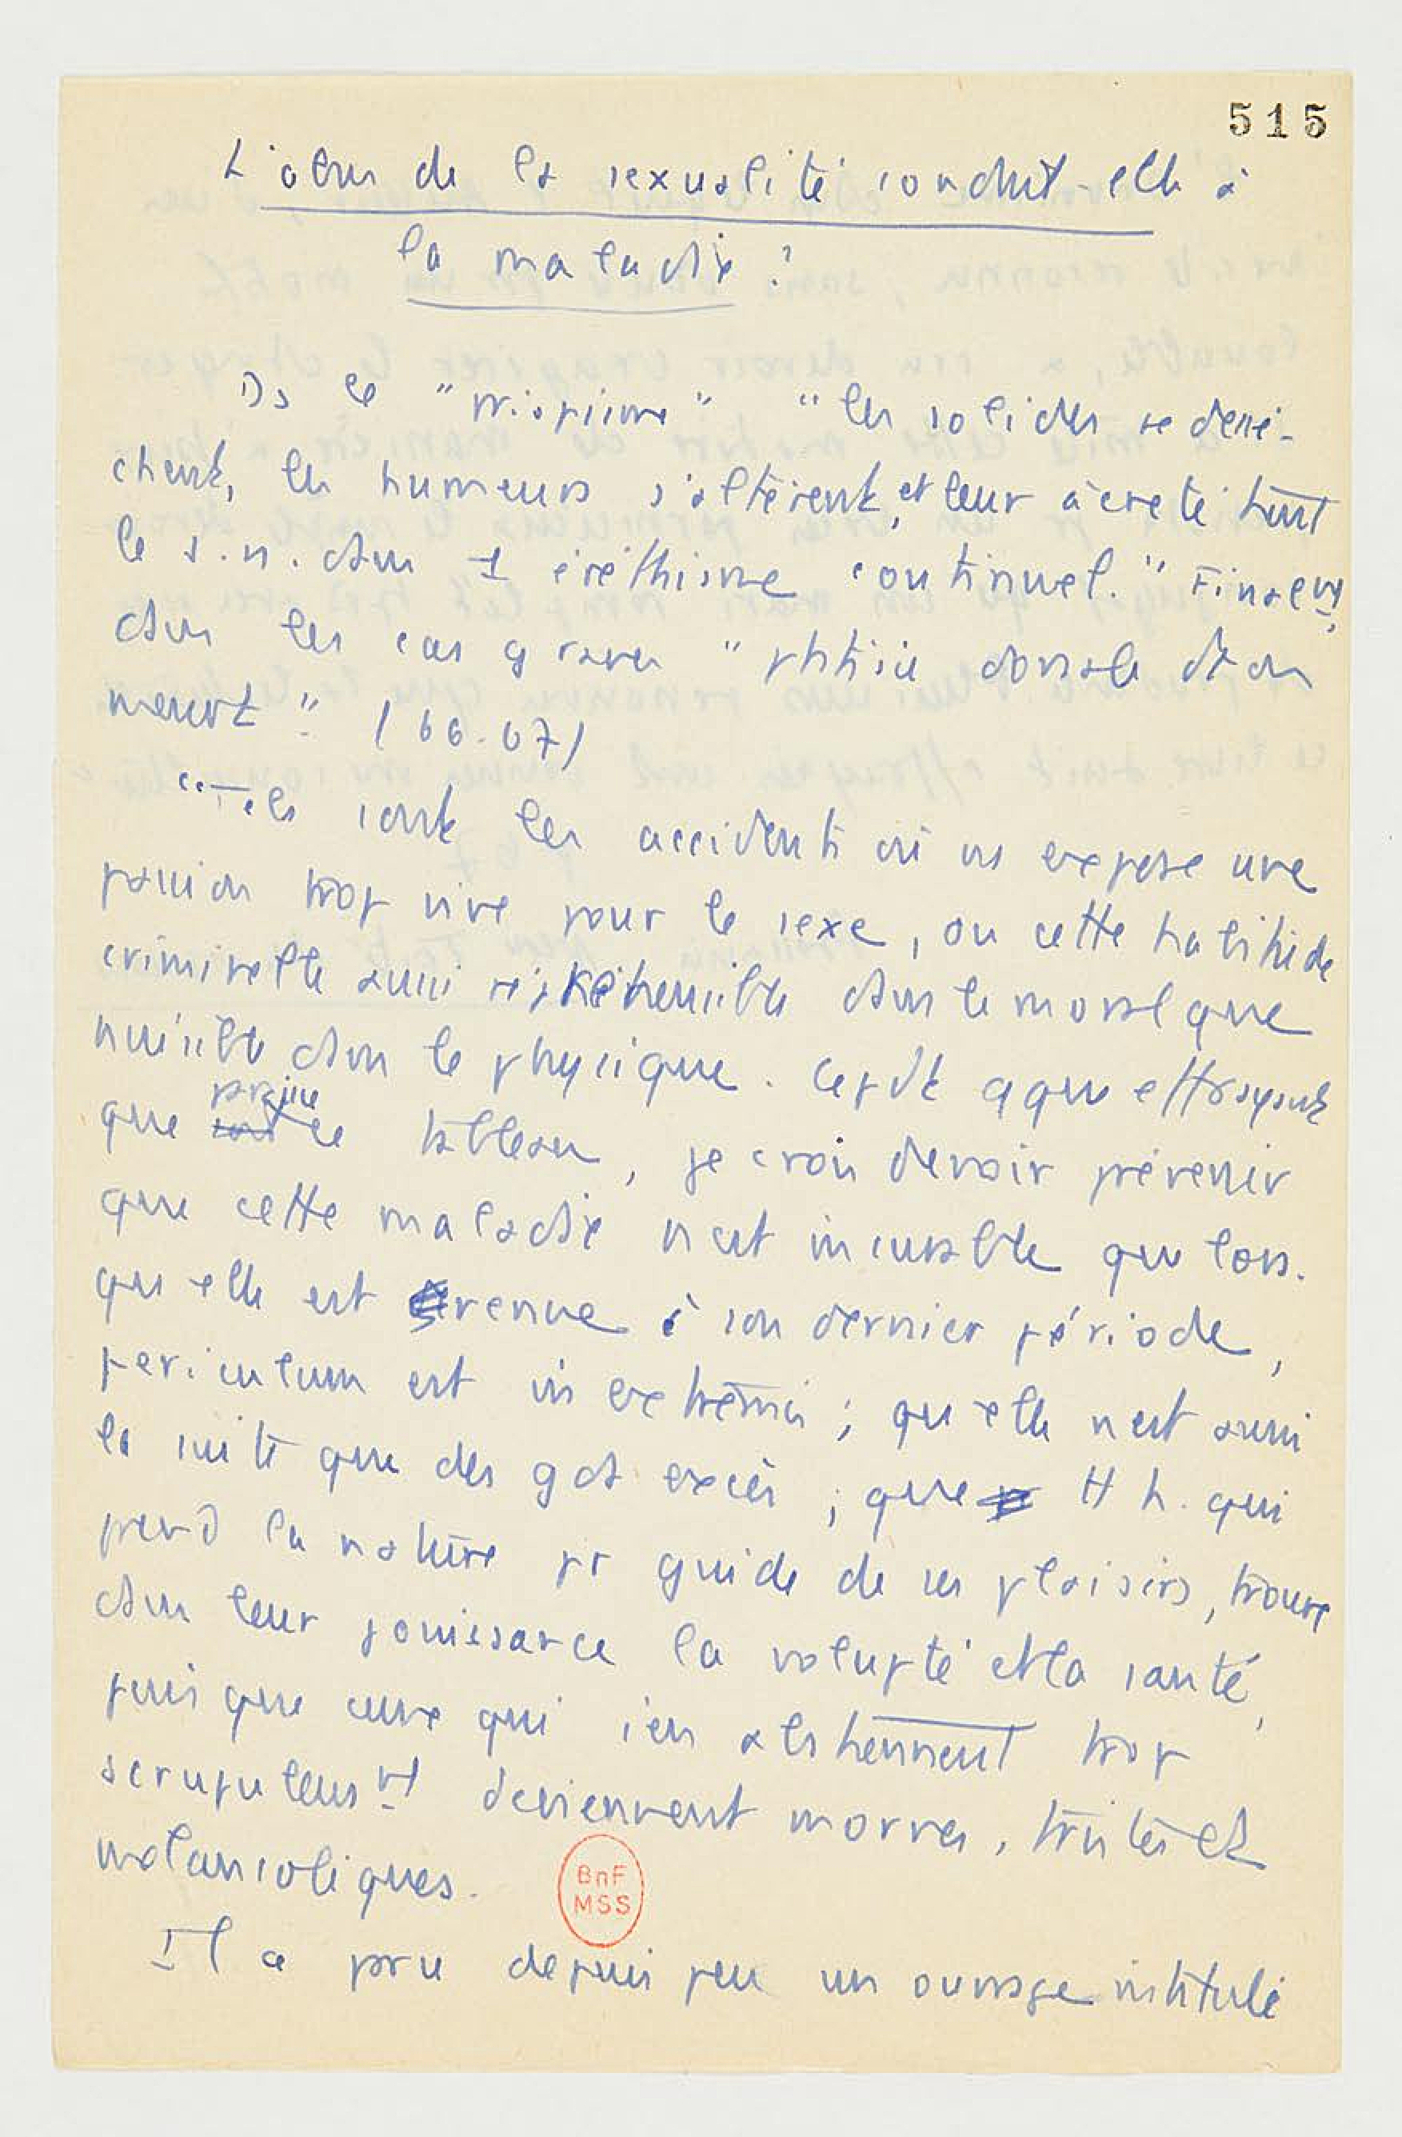 515
L'abus de la sexualité conduit-elle à
la maladie?
Ds le "priapisme" "les solides se dessè-
chent, les humeurs s'altèrent, et leur âcreté tient
le s.n. dans 1 éréthisme continuel." Finalemt,
dans les cas graves "phtisie dorsale d'on
meurt". (66-67)
"Tels sont les accidents où ns expose une
passion trop vive pour le sexe, ou cette habitude
criminelle aussi répréhensible dans le moral que
nuisible dans le physique. Cepdt qque effrayant
que puisse ce tableau, je crois devoir prévenir
que cette maladie n'est incurable que lors-
qu'elle est venue à son dernier période,
periculum est in extremis; qu'elle n'est aussi
la suite que des gds excès; que tt h. qui
prend la nature pr guide de ses plaisirs, trouve
dans leur jouissance la volupté et la santé,
puisque ceux qui s'en abstiennent trop
scrupuleusmt deviennent mornes, tristes et
mélancoliques.
BnF
MSS
Il a paru depuis peu un ouvrage intitulé